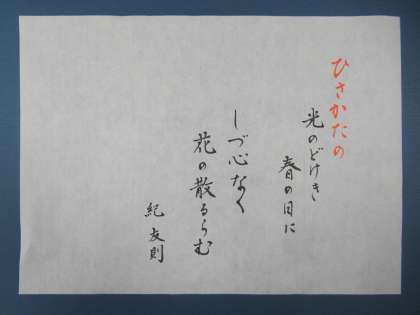 ひさかたの
光のどけき
春の日に
しづ心なく
花の散るらむ
紀友則